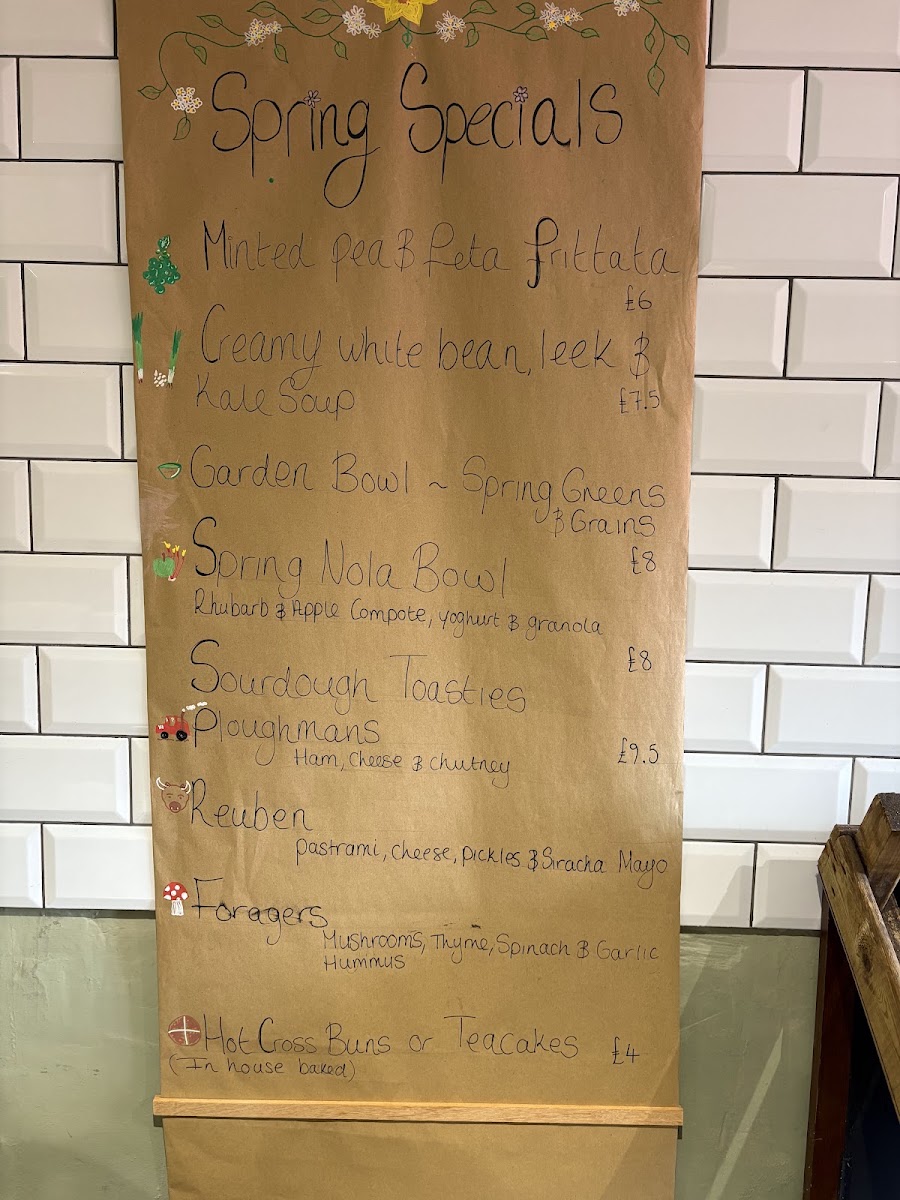 Spring Specials
Minted pea & feta frittata
£6
Creamy white bean, leek &
Kale Soup £7.5
Garden Bowl ~ Spring Greens
& Grains
£8
Spring Nola Bowl
Rhubarb & Apple Compote, yoghurt & granola
£8
Sourdough Toasties
Ploughmans
Ham, cheese & chutney £9.5
Reuben
pastrami, cheese, pickles & Siracha Mayo
Foragers
Mushrooms, Thyme, Spinach & Garlic
Hummus
Hot Cross Buns or Teacakes £4
(In house baked)